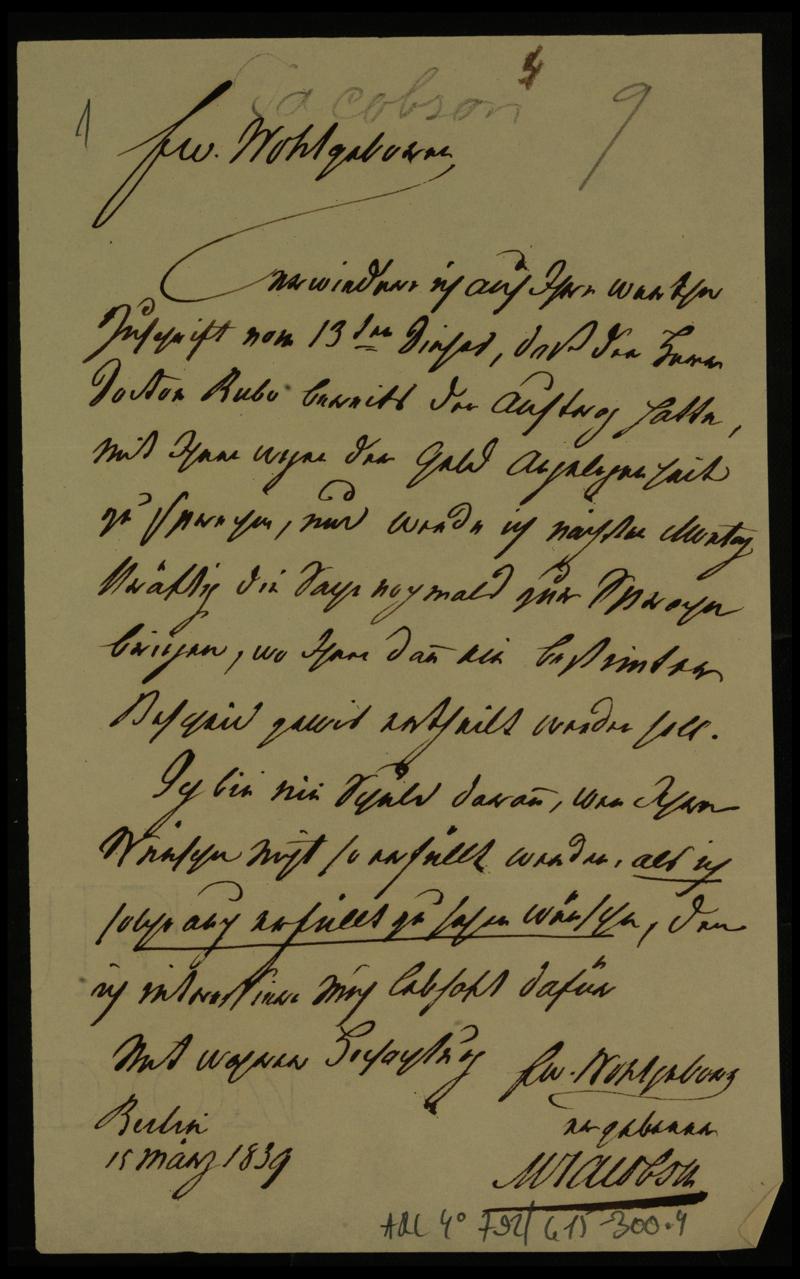 Jacobson
4
9
1
Ew. Wohlgeboren
erwiedere ich auf Ihre werthe
Zuschrift vom 13ten dieses, daß der Herr
Doctor Rubo bereits den Auftrag hatte,
mit Ihnen wegen der Geld Angelegenheit
zu sprechen, und werde ich nächsten Montag
kräftig die Sache nochmals zur Sprache
bringen, wo Ihnen dan̄ ein bestimter
Bescheid gewis ertheilt werden soll.
Ich bin nie Schuld daran̄, wen Ihre
Wünsche nicht so erfüllt werden, als ich
solche auch erfüllt zu sehen wünsche, den
ich interessiere mich lebhaft dafür
Mit wahrer Hochachtung
Ew. Wohlgeboren
Berlin
ergebener
15 März 1839
M Jacobson
ARC 4° 792/ G15-300.4